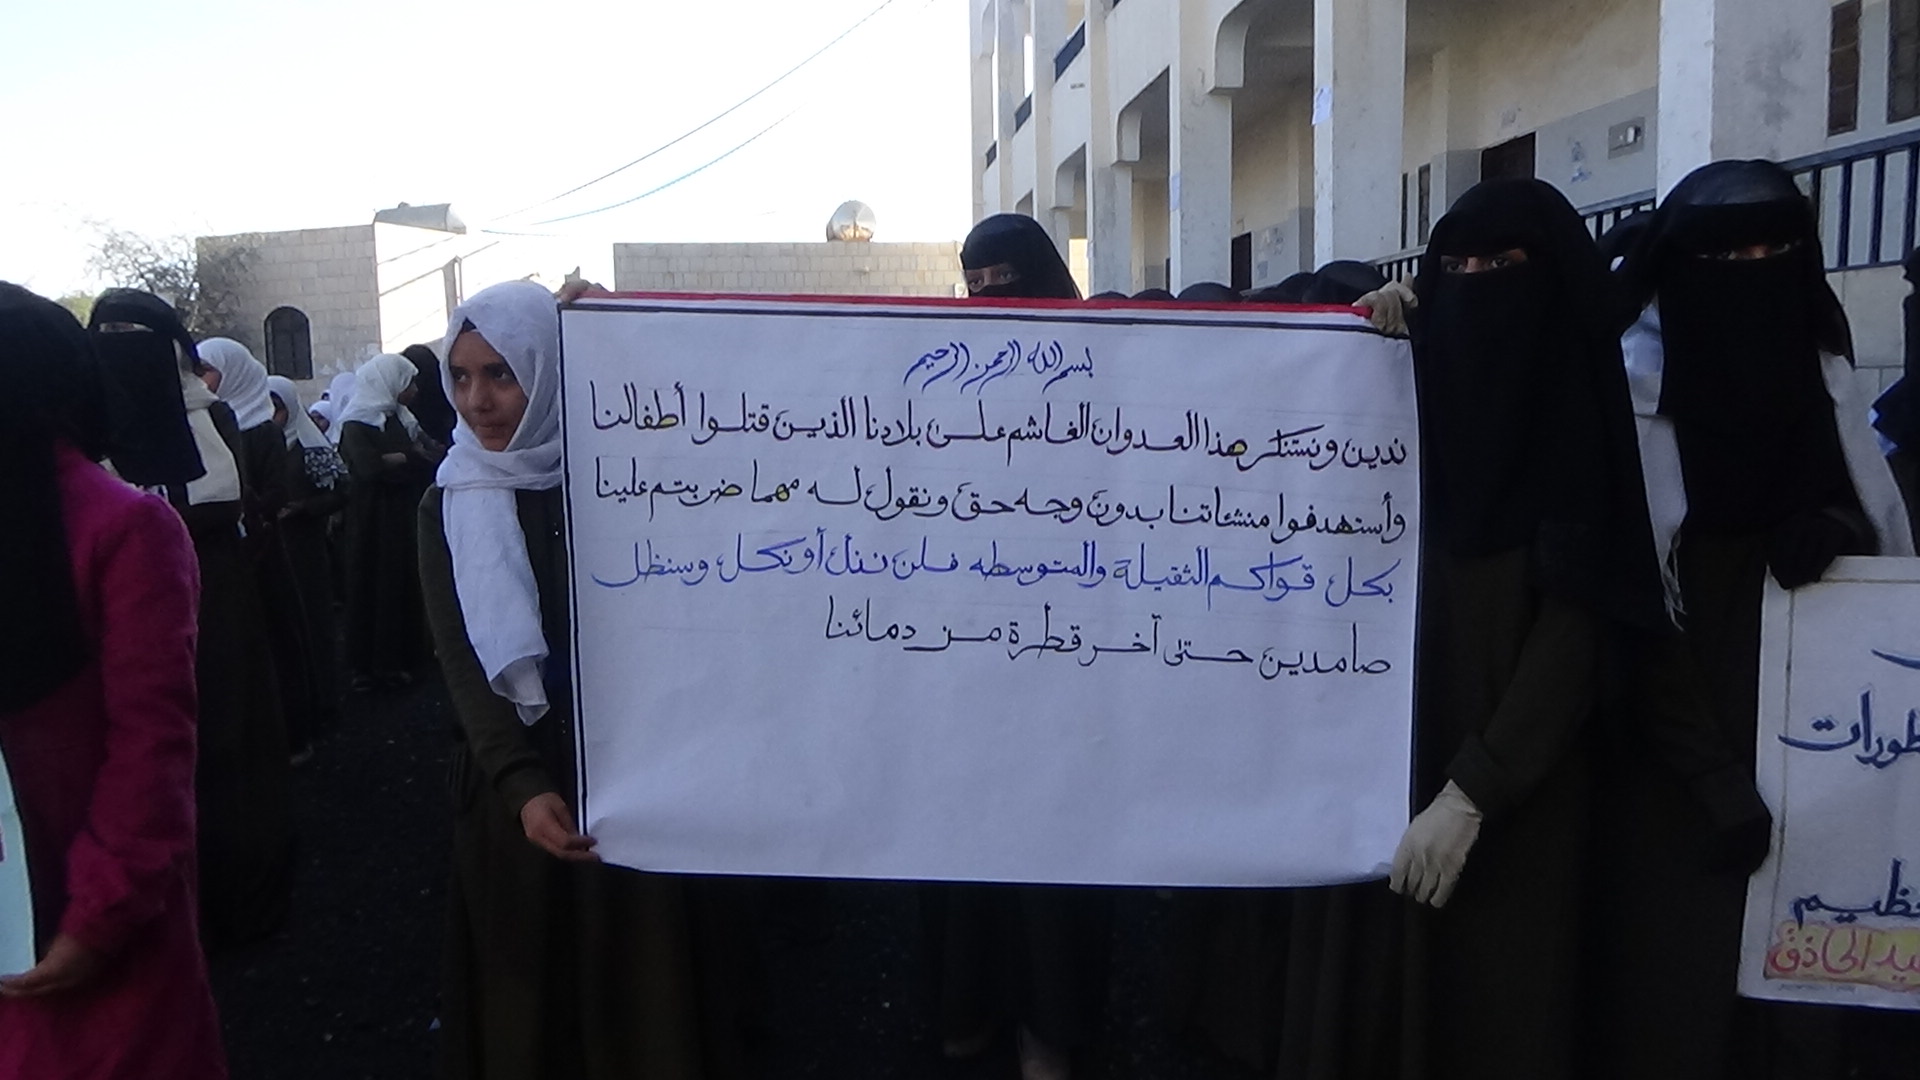 بسم الله الرحمن الرحيم
ندين ونستنكر هذا العدوان الغاشم على بلادنا الذين قتلوا أطفالنا
وأستهدفوا منشئاتنا بدون وجه حق ونقول له مهما ضربتم علينا
بكل قواكم الثقيلة والمتوسطه فلن نذل أو نكل وسنظل
صامدين حتى آخر قطرة من دمائنا